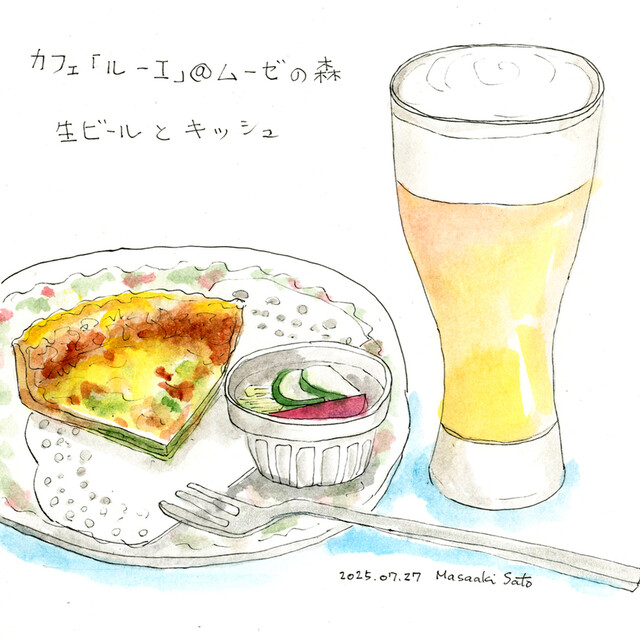 カフェ「ルーエ」@ムーゼの森
生ビールとキッシュ
2025.07.27 Masaaki Sato